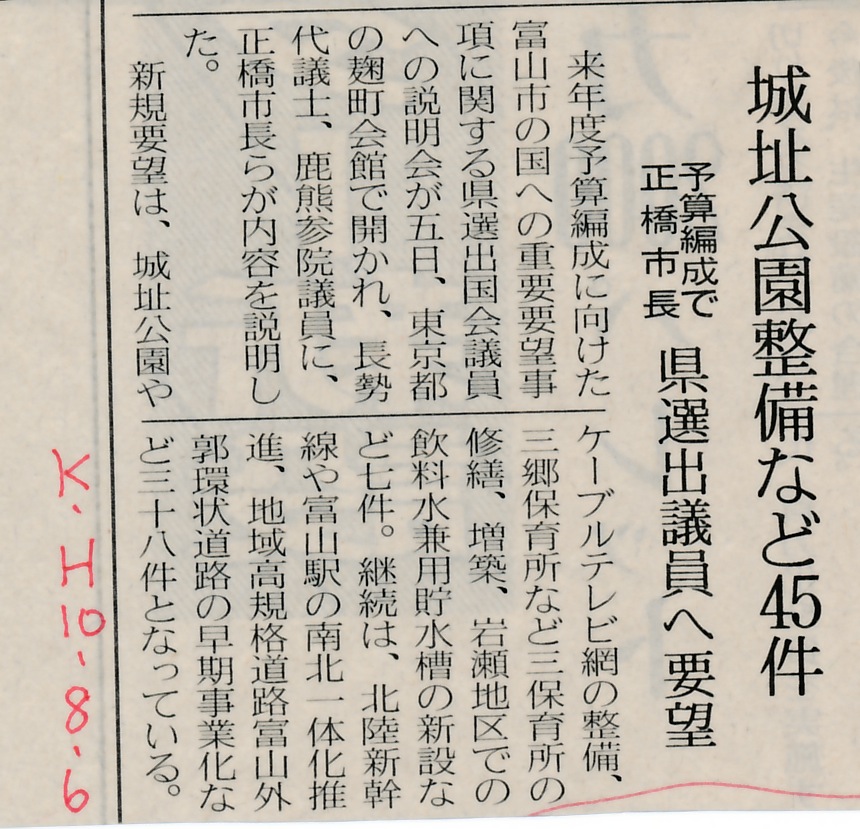 城址公園整備など45件
予算編成で
正橋市長
県選出議員へ要望
来年度予算編成に向けた
富山市の国への重要要望事
項に関する県選出国会議員
への説明会が五日、東京都
の麹町会館で開かれ、長勢
代議士、鹿熊参院議員に、
正橋市長らが内容を説明し
た。
新規要望は、城址公園や
ケーブルテレビ網の整備、
三郷保育所など三保育所の
修繕、増築、岩瀬地区での
飲料水兼用貯水槽の新設な
ど七件。継続は、北陸新幹
線や富山駅の南北一体化推
進、地域高規格道路富山外
郭環状道路の早期事業化な
ど三十八件となっている。
K.H10.8.6